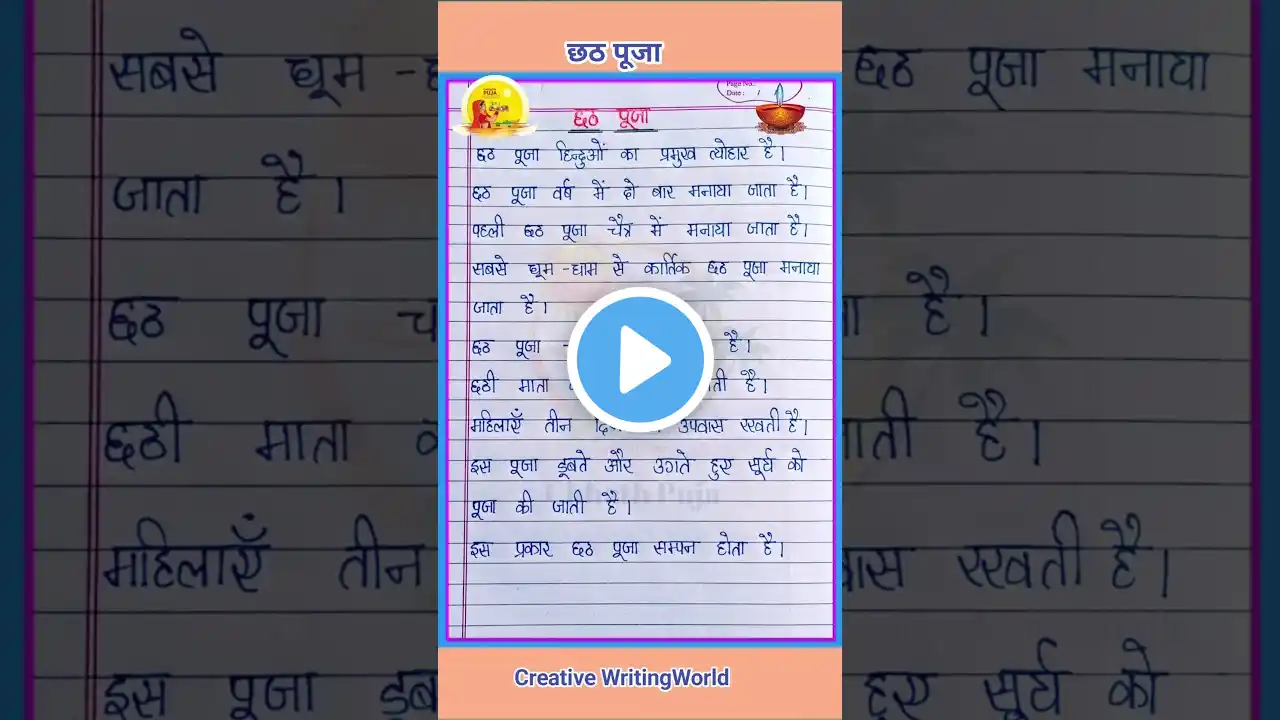 छठ पूजा
Page No.:
Date: /
छठ पूजा
छठ पूजा हिन्दुओं का प्रमुख त्योहार है।
छठ पूजा वर्ष में दो बार मनाया जाता है।
पहली छठ पूजा चैत्र में मनाया जाता है।
सबसे धूम-धाम से कार्तिक छठ पूजा मनाया
जाता है।
छठ पूजा है।
छठी माता है।
महिलाएँ तीन उपवास रखती है।
इस पूजा डूबते और उगते हुए सूर्य को
पूजा की जाती है।
इस प्रकार छठ पूजा सम्पन होता है।
Creative WritingWorld